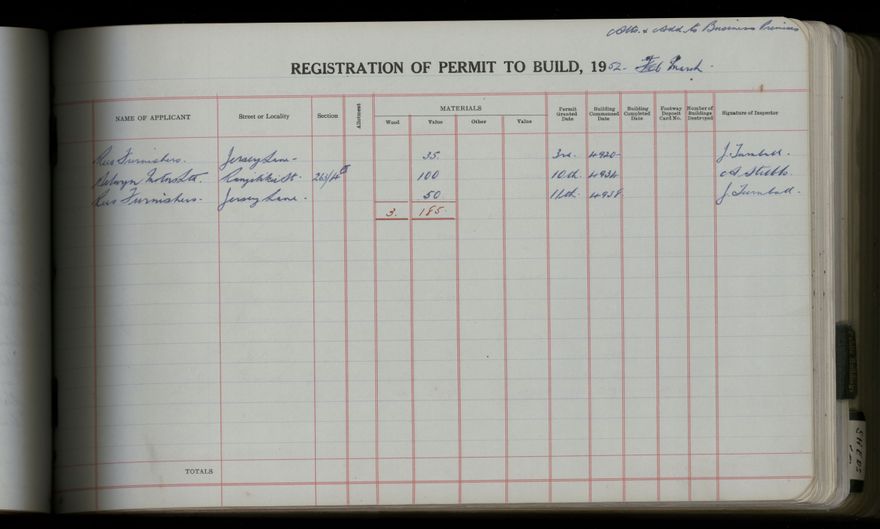 Alts. & Add. to Business Premises
REGISTRATION OF PERMIT TO BUILD, 1952. Feb March.
NAME OF APPLICANT Street or Locality Section Allotment MATERIALS Wood Value Other Value Permit Granted Date Building Commenced Date Building Completed Date Footway Deposit Card No. Number of Buildings Destroyed Signature of Inspector
Furnishers. Jersey Lane 35. 3rd. 4920 J. Turnbull.
Selwyn Motors Ltd. Rangitikei St. 263/4 100 10th. 4934 A. Stubbs
Furnishers. Jersey Lane. 50 11th. 4938. J. Turnbull.
3. 185.
TOTALS
SHEDS